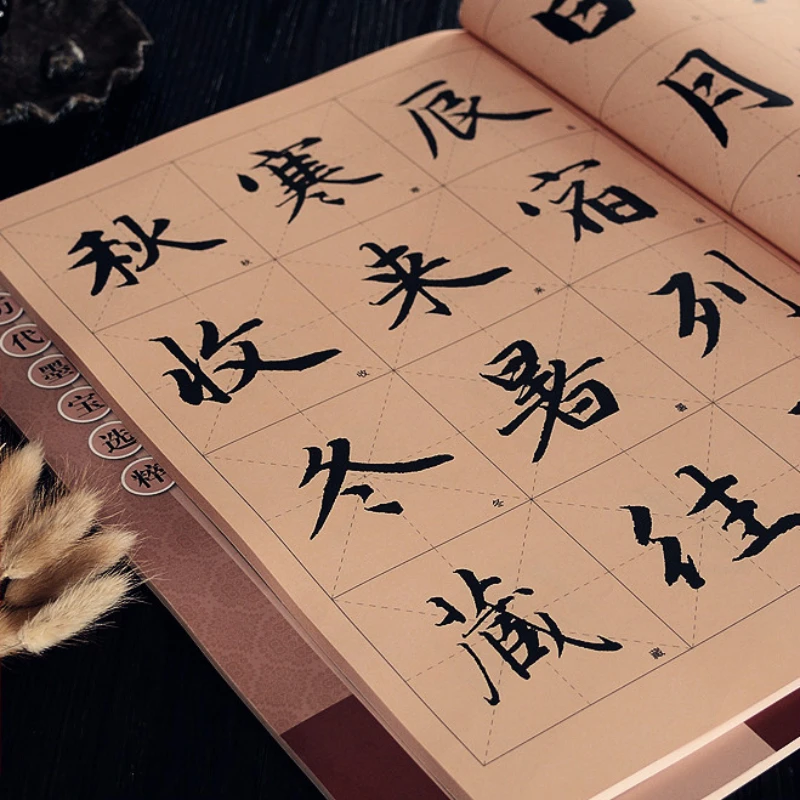 日月
辰宿列
寒来暑往
秋收冬藏
收
冬
藏
历代墨宝选粹